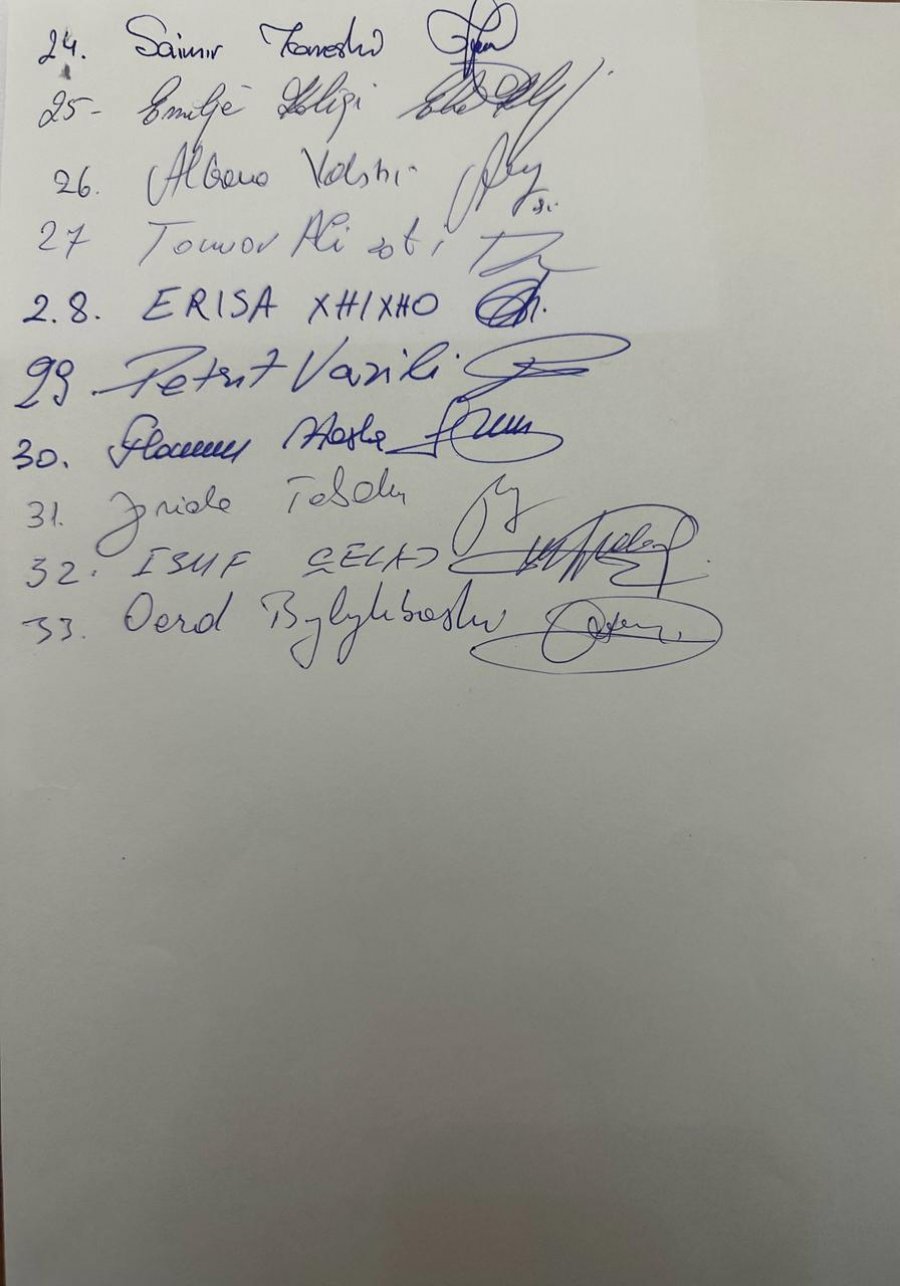 24. Saimir
25- Emilje Koliqi
26. Albana
27 Tomor Alizoti
2.8. ERISA XHIXHO
29. Petrit Vasili
30. Flamur Hoxha
31. Jorida Tabaku
32. ISUF ÇELAJ
33. Oerd Bylykbashi